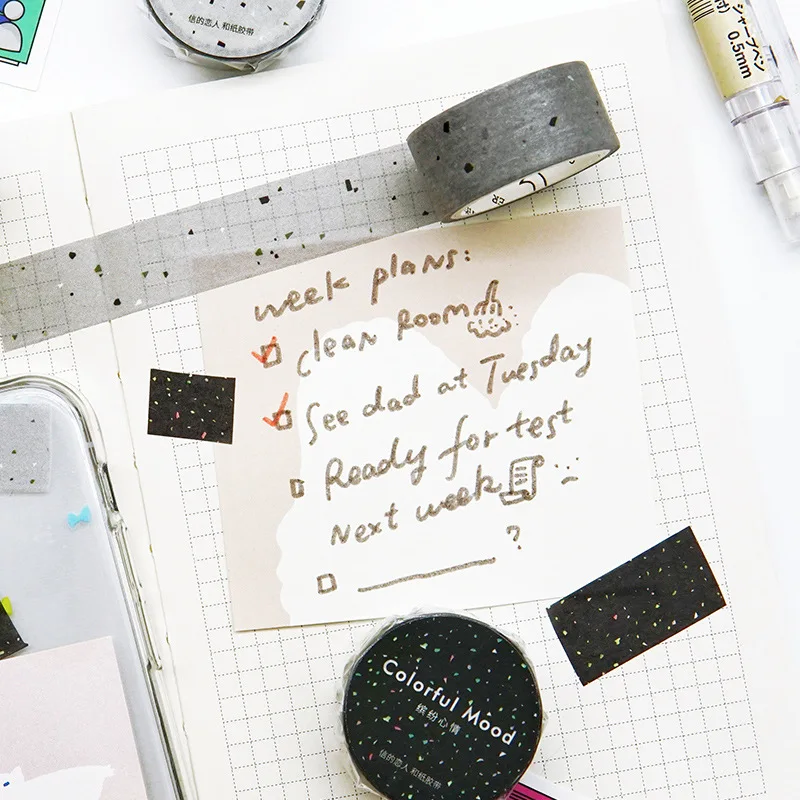 信的恋人 和纸胶带
シャープペン
0.5mm
week plans:
clean Room
See dad at Tuesday
Ready for test
Next week
?
Colorful Mood
缤纷心情
信的恋人 和纸胶带